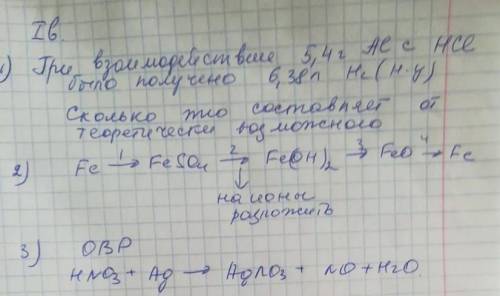 Iв.
1) При взаимодействие 5,4г Al с HCl
было получено 6,38л H₂ (н.у)
Сколько это составляет от
теоретически возможного
2) Fe —1→ FeSO₄ —2→ Fe(OH)₂ —3→ FeO —4→ Fe
↓
на ионы
разложить
3) ОВР
HNO₃ + Ag → AgNO₃ + NO + H₂O.